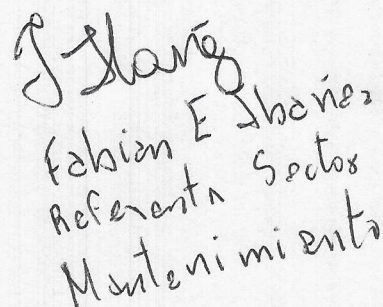 Fabian E Ibañez
Referente Sector
Mantenimiento